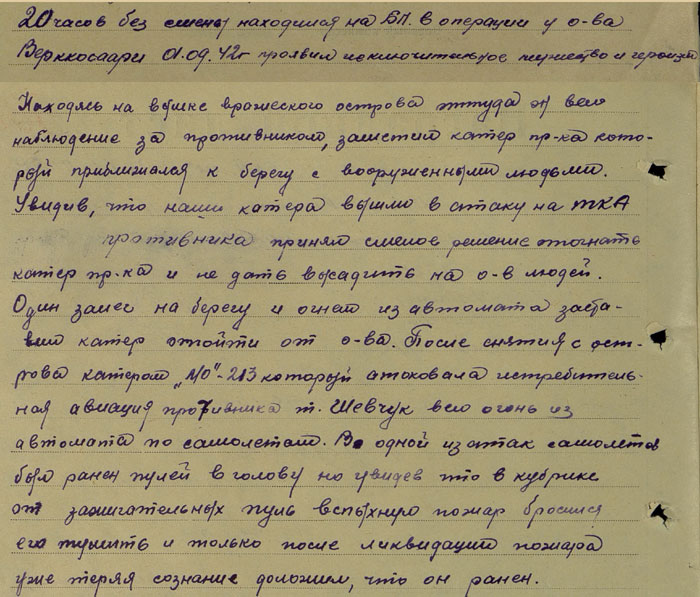 20 часов без смены находился на БП. в операции у о-ва
Верккосаари 01.09.42г проявил исключительное мужество и героизм
Находясь на вышке вражеского острова откуда он вел
наблюдение за противником, заметил катер пр-ка кото-
рый приближался к берегу с вооруженными людьми.
Увидив, что наши катера вышли в атаку на ТКА
противника принял смелое решение отогнать
катер пр-ка и не дать высадить на о-в людей.
Один залег на берегу и огнем из автомата заста-
вил катер отойти от о-ва. После снятия с ост-
рова катером „МО"-213 который атаковала истребитель-
ная авиация противника т. Шевчук вел огонь из
автомата по самолетам. Во одной из атак самолетов
был ранен пулей в голову но увидев что в кубрике
от зажигательных пуль вспыхнуло пожар бросился
его тушить и только после ликвидации пожара
уже теряя сознание доложил, что он ранен.